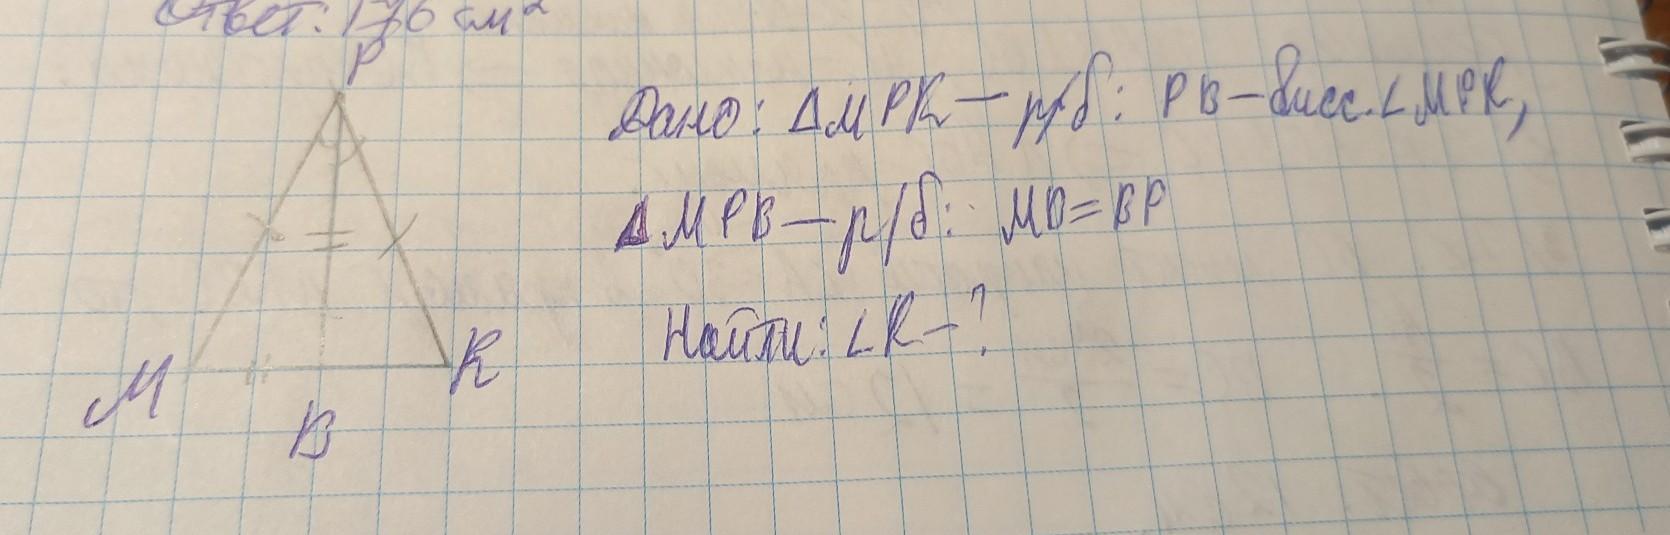 Ответ: 176 см²
P
Дано: ΔMPK — р/б: PB — бисс. ∠MPK,
ΔMPB — р/б: MB = BP
Найти: ∠K — ?
M
K
B